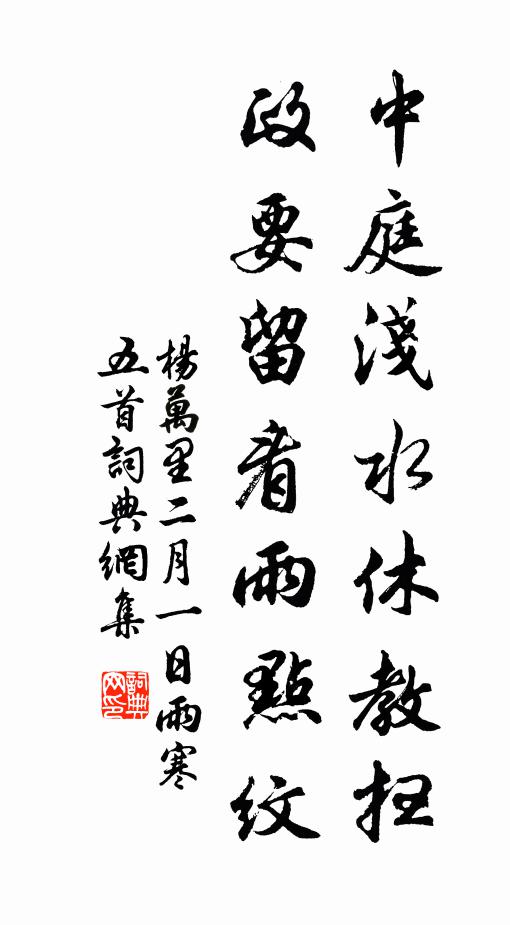 中庭淺水休教掃
政要留看雨點紋
楊萬里二月一日雨寒
五首詞典網集
詞典网印